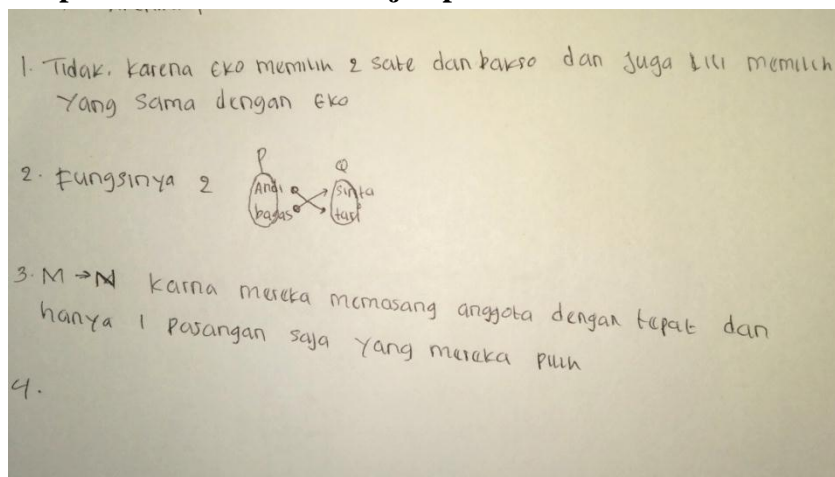 1. Tidak, karena Eko memilih 2 sate dan bakso dan juga Lili memilih
yang sama dengan Eko
2. Fungsinya 2
P Q
Andi sinta
bagas tari
3. M → N karna mereka memasang anggota dengan tepat dan
hanya 1 pasangan saja yang mereka pilih
4.